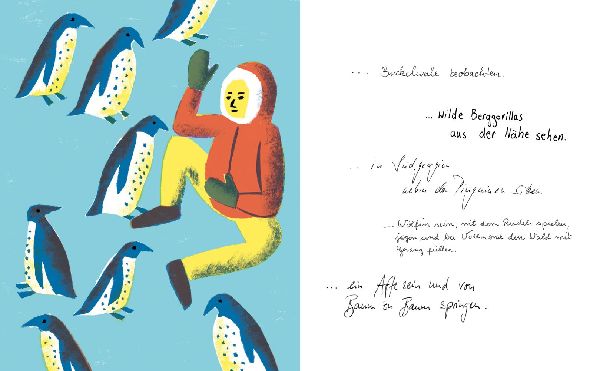 .... Buckelwale beobachten.
... Wilde Berggorillas
aus der Nähe sehen.
... in Südgeorgien
neben den Pinguinen sitzen.
... Wölfin sein, mit dem Rudel spielen,
jagen und bei Vollmond den Wald mit
füllen.
... ein Affe sein und von
Baum zu Baum springen.